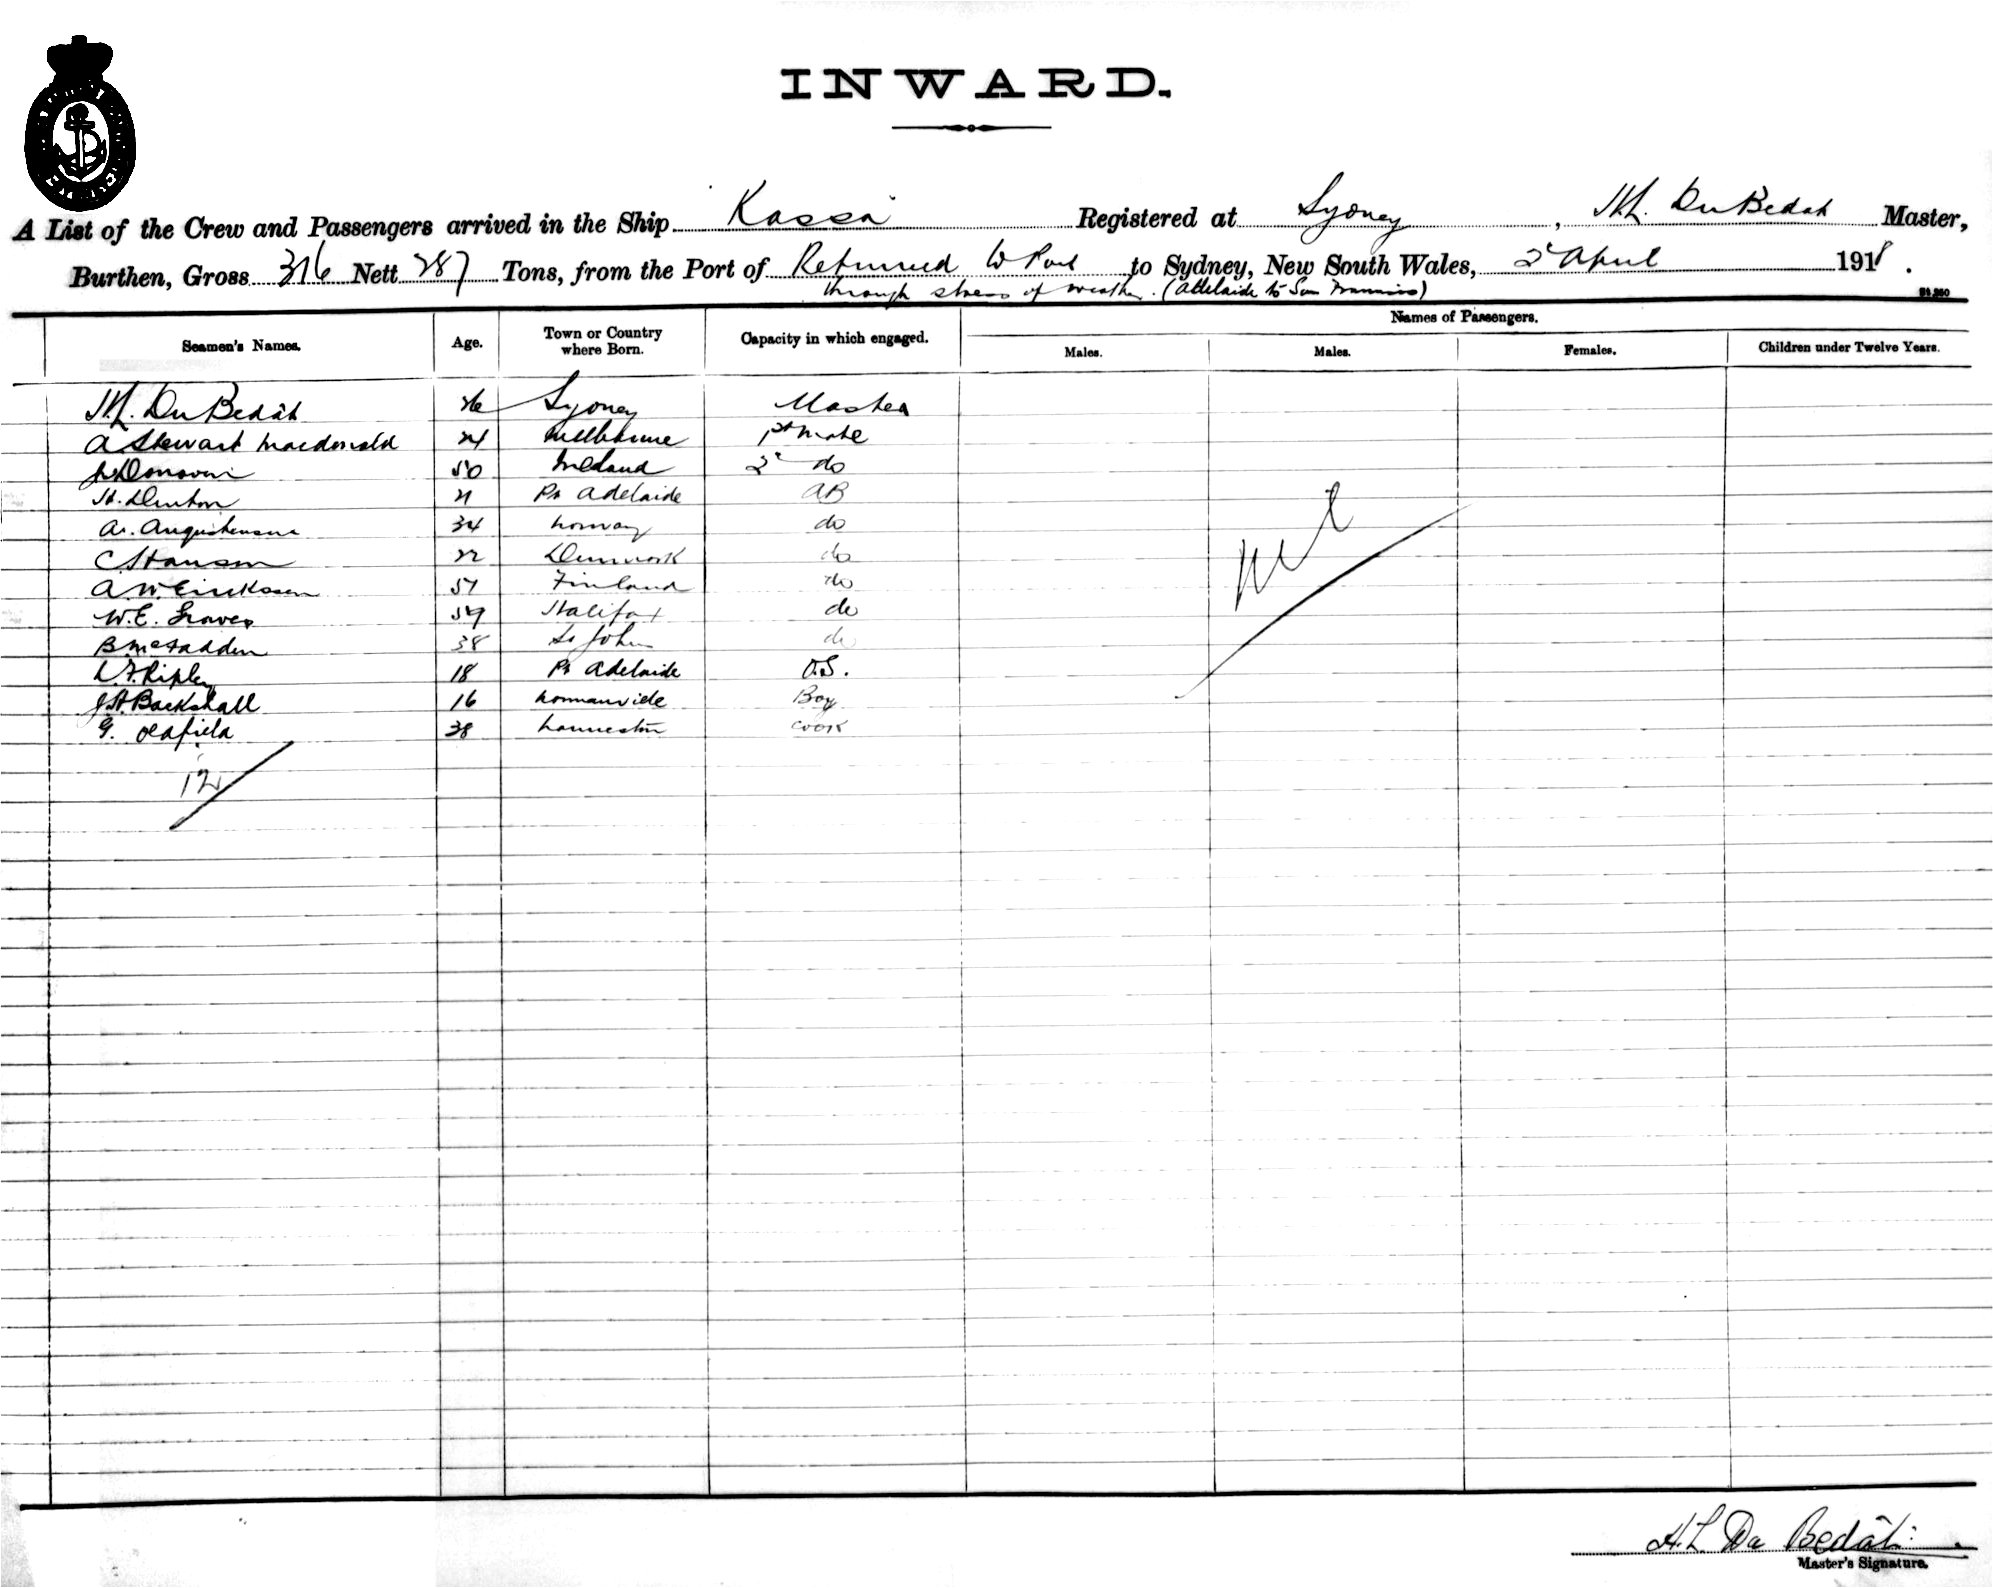 INWARD.
A List of the Crew and Passengers arrived in the Ship Kassa Registered at Sydney, H.L. Du Bedat Master,
Burthen, Gross 316 Nett 287 Tons, from the Port of Returned to Port to Sydney, New South Wales, 2d April 1918.
through stress of weather. (Adelaide to San Francisco)
Names of Passengers.
Seamen's Names. Age. Town or Country where Born. Capacity in which engaged. Males. Males. Females. Children under Twelve Years.
H.L. Du Bedât 26 Sydney Master
A Stewart Macdonald 24 Melbourne 1st mate
Donovan 50 Ireland 2d do
H. Denton 21 Pt Adelaide AB
A. 34 Norway do
C Hanson 22 Denmark do
A.W. Erickssen 57 Finland do
W.E. Graves 59 Halifax do
B McFadden 38 St John do
L.F. Ripley 18 Pt Adelaide O.S.
J.H. Backshall 16 Normanville Boy
G. Oldfield 38 Launceston Cook
Nil
12
H.L Du Bedât
Master's Signature.